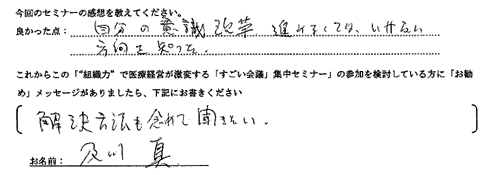 今回のセミナーの感想を教えてください。
良かった点：自分の意識改革 進めなくては、いけない
方向を知った。
これからこの「“組織力”で医療経営が激変する「すごい会議」集中セミナー」の参加を検討している方に「お勧
め」メッセージがありましたら、下記にお書きください
解決方法も含めて聞きたい。
お名前：及川 真